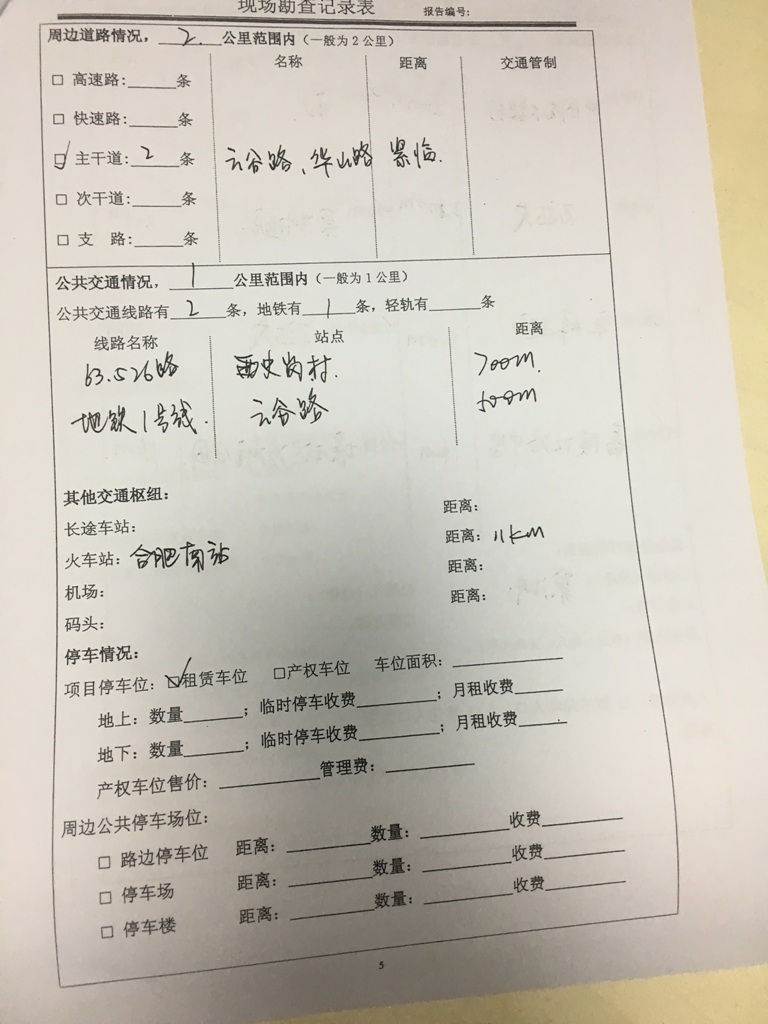 现场勘查记录表 报告编号:
周边道路情况, 2 公里范围内（一般为2公里）
名称 距离 交通管制
□ 高速路:______条
□ 快速路:______条
☑ 主干道: 2 条 云谷路、华山路 紧临.
□ 次干道:______条
□ 支 路:______条
公共交通情况, 1 公里范围内（一般为1公里）
公共交通线路有 2 条, 地铁有 1 条, 轻轨有______条
线路名称 站点 距离
63.526路 西史岗村. 700m.
地铁1号线. 云谷路 500m
其他交通枢纽:
长途车站: 距离:
火车站: 合肥南站 距离: 11km
机场: 距离:
码头: 距离:
停车情况:
项目停车位: ☑租赁车位 □产权车位 车位面积: ________
地上: 数量______; 临时停车收费________; 月租收费_____
地下: 数量______; 临时停车收费________; 月租收费_____
产权车位售价: ____________管理费: ________
周边公共停车场位:
□ 路边停车位 距离: ________数量: ________收费________
□ 停车场 距离: ________数量: ________收费________
□ 停车楼 距离: ________数量: ________收费________
5